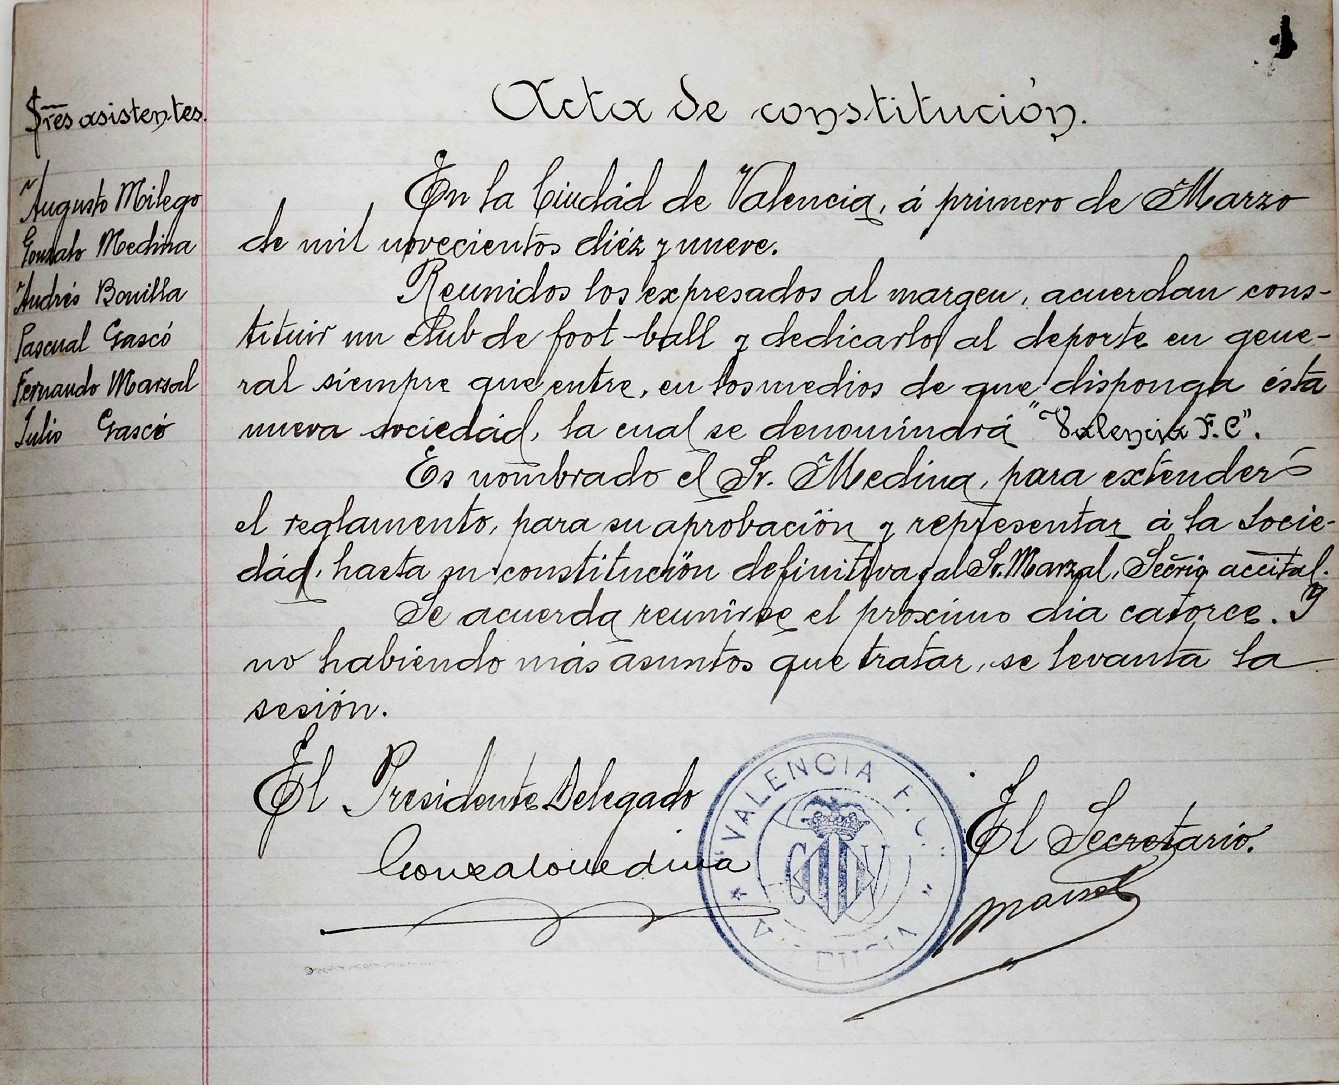 1
Acta de constitución.
Sres asistentes.
Augusto Milego
Gonzalo Medina
Andrés Bonilla
Pascual Gascó
Fernando Marsal
Julio Gascó
En la Ciudád de Valencia, á primero de Marzo
de mil novecientos diéz y nueve.
Reunidos los expresados al margen, acuerdan cons-
tituir un club de foot-ball y dedicarlo al deporte en gene-
ral siempre que entre, en los medios de que disponga ésta
nueva sociedád, la cual se denomindrá "Valencia F.C".
Es nombrado el Sr. Medina, para extender
el reglamento, para su aprobación y representar á la Socie-
dád, hasta su constitución definitiva y al Sr. Marzal, Secrio accital.
Se acuerda reunirse el próximo dia catorce. Y
no habiendo más asuntos que tratar, se levanta la
sesión.
El Presidente Delegado
Gonzalo Medina
"VALENCIA F.C."
VALENCIA
El Secretario.
Marsal